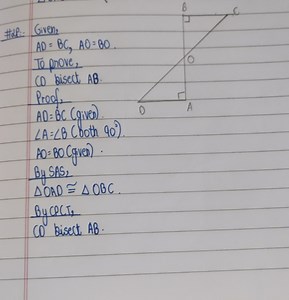 Given,
AD = BC, AO = BO.
To prove,
CD bisect AB.
Proof,
AD = BC (given)
∠A = ∠B (both 90°)
AO = BO (given).
By SAS,
△OAD ≅ △OBC.
By CPCT,
CD bisect AB.
B
C
O
D
A